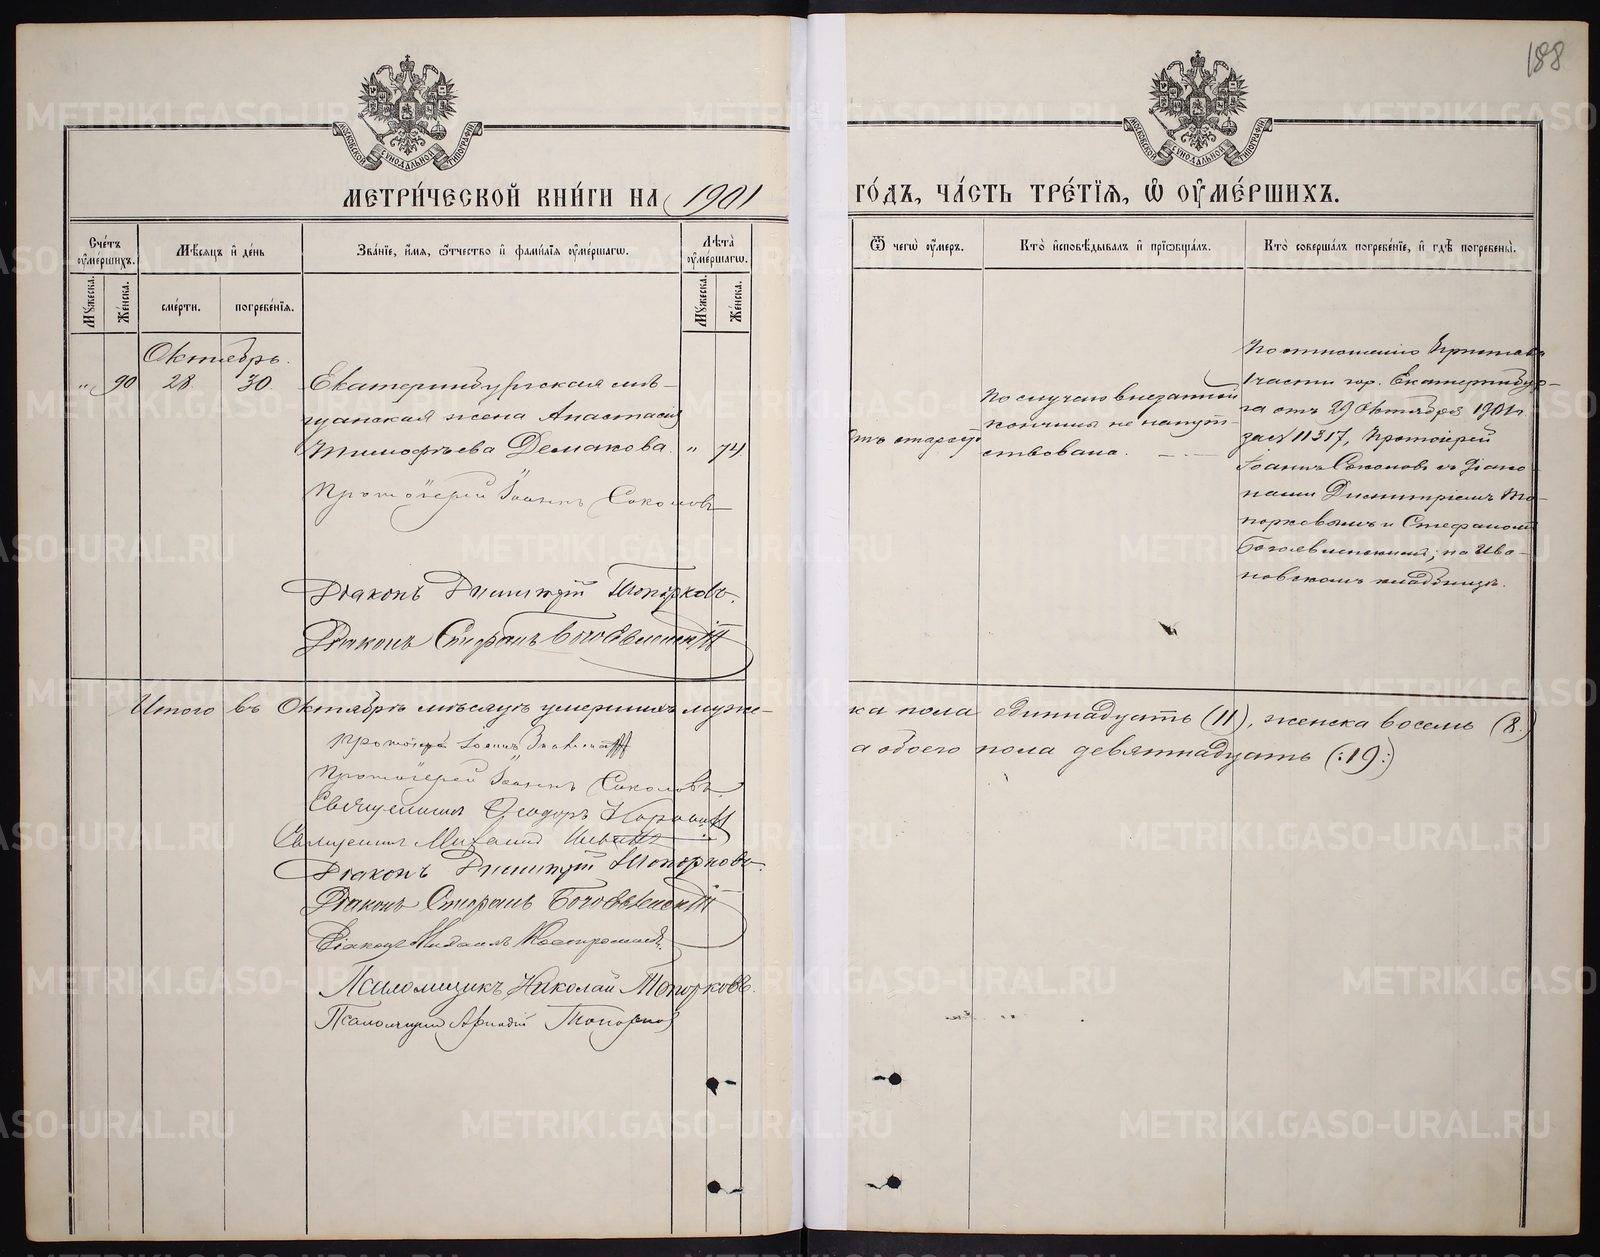 188
МЕТРИ́ЧЕСКОЙ КНИ́ГИ НА 1901 ГО́ДЪ, ЧА́СТЬ ТРЕ́ТЇѦ, Ѡ ОУМЕ́РШИХЪ.
МОСКОВСКОЙ СѴНОДАЛЬНОЙ ТИПОГРАФІИ
МОСКОВСКОЙ СѴНОДАЛЬНОЙ ТИПОГРАФІИ
Сче́тъ оуме́ршихъ.
Мꙋжеска.
Же́нска.
Мѣ́сѧцъ и҆ де́нь
сме́рти.
погребе́нїѧ.
Зва́нїе, и҆́мѧ, ѻ҆́тчество и҆ фами́лїѧ оуме́ршагѡ.
Лѣ́та оуме́ршагѡ.
Мꙋжеска.
Же́нска.
Ѿ чегѡ̀ оу҆́меръ.
Кто̀ и҆сповѣ́дывалъ и҆ прїѡбща́лъ.
Кто̀ соверша́лъ погребе́нїе, и҆ гдѣ̀ погребены̀.
Октябрь.
" 90 28. 30.
Екатеринбургская мѣ-
щанская жена Анастасія
Тимофѣева Демакова. " 74
Протоіерей Іоаннъ Соколовъ
Діаконъ Димитрій Топорковъ.
Діаконъ Стефанъ Богоявленскій
отъ старости
По случаю внезапной
кончины не напут-
ствована.
По отношенію Пристава
1 части гор. Екатеринбур-
га отъ 29 Октября 1901 г.
за № 11317, Протоіерей
Іоаннъ Соколовъ съ діако-
нами Димитріемъ То-
порковымъ и Стефаномъ
Богоявленскимъ; на Ива-
новскомъ кладбищѣ.
Итого въ Октябрѣ мѣсяцѣ умершихъ муже-
ска пола одиннадцать (11), женска восемь (8.)
а обоего пола девятнадцать (:19:)
Протоіерей Іоаннъ
Протоіерей Іоаннъ Соколовъ.
Священникъ Ѳеодоръ
Священникъ Михаилъ
Діаконъ Димитрій Топорковъ.
Діаконъ Стефанъ Богоявленскій
Діаконъ Михаилъ
Псаломщикъ Николай Топорковъ.
Псаломщикъ Аркадій Топорковъ
METRIKI.GASO-URAL.RU